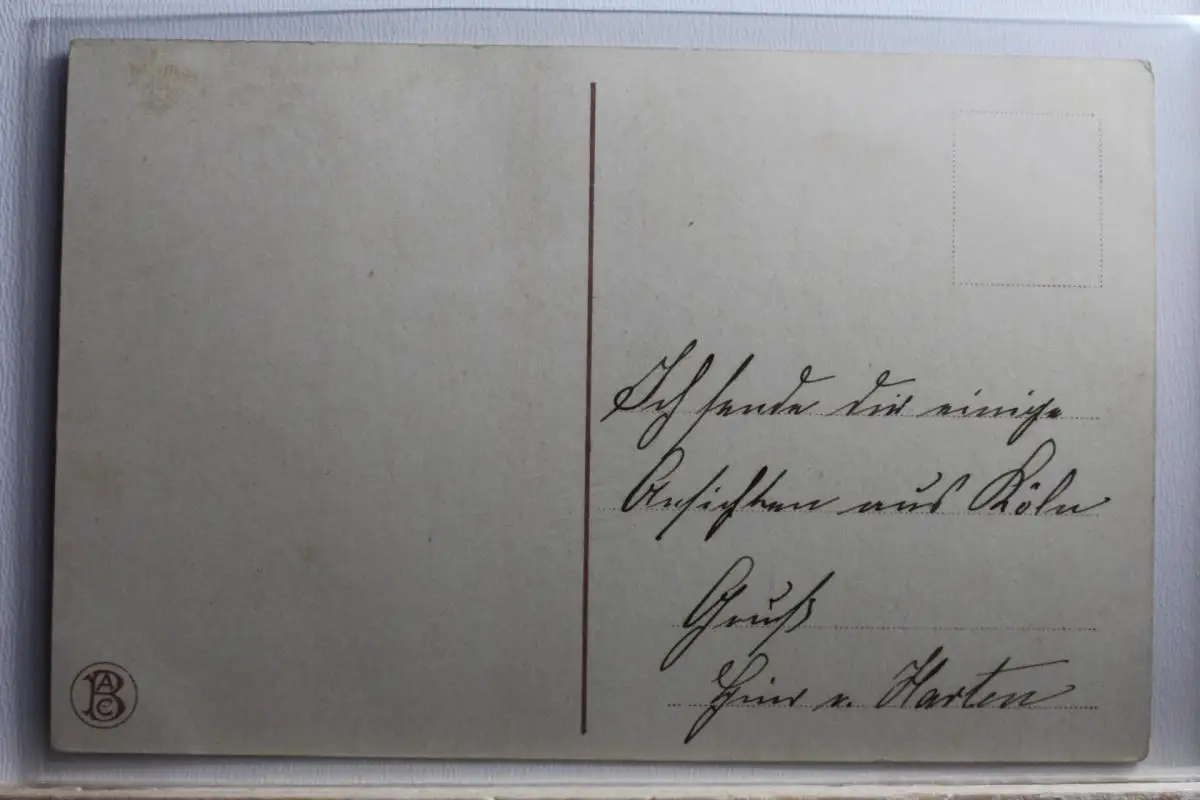 Ich sende dir einige
Ansichten aus Köln
Gruß
v. Harten
ABC